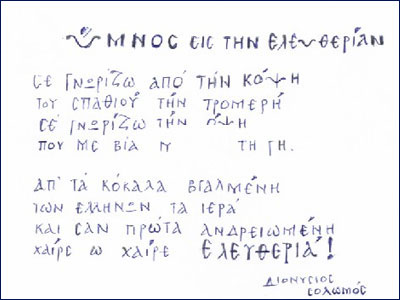 ὝΜΝΟΣ ΕΙΣ ΤΗΝ ΕΛΕΥΘΕΡΙΑΝ
ΣΕ ΓΝΩΡΙΖΩ ΑΠΟ ΤΗΝ ΚΟΨΗ
ΤΟΥ ΣΠΑΘΙΟΥ ΤΗΝ ΤΡΟΜΕΡΗ
ΣΕ ΓΝΩΡΙΖΩ ΤΗΝ ΟΨΗ
ΠΟΥ ΜΕ ΒΙΑ ΤΗ ΓΗ.
ΑΠ' ΤΑ ΚΟΚΑΛΑ ΒΓΑΛΜΕΝΗ
ΤΩΝ ΕΛΛΗΝΩΝ ΤΑ ΙΕΡΑ
ΚΑΙ ΣΑΝ ΠΡΩΤΑ ΑΝΔΡΕΙΩΜΕΝΗ
ΧΑΙΡΕ Ω ΧΑΙΡΕ ΕΛΕΥΘΕΡΙΑ!
ΔΙΟΝΥΣΙΟΣ
ΣΟΛΩΜΟΣ